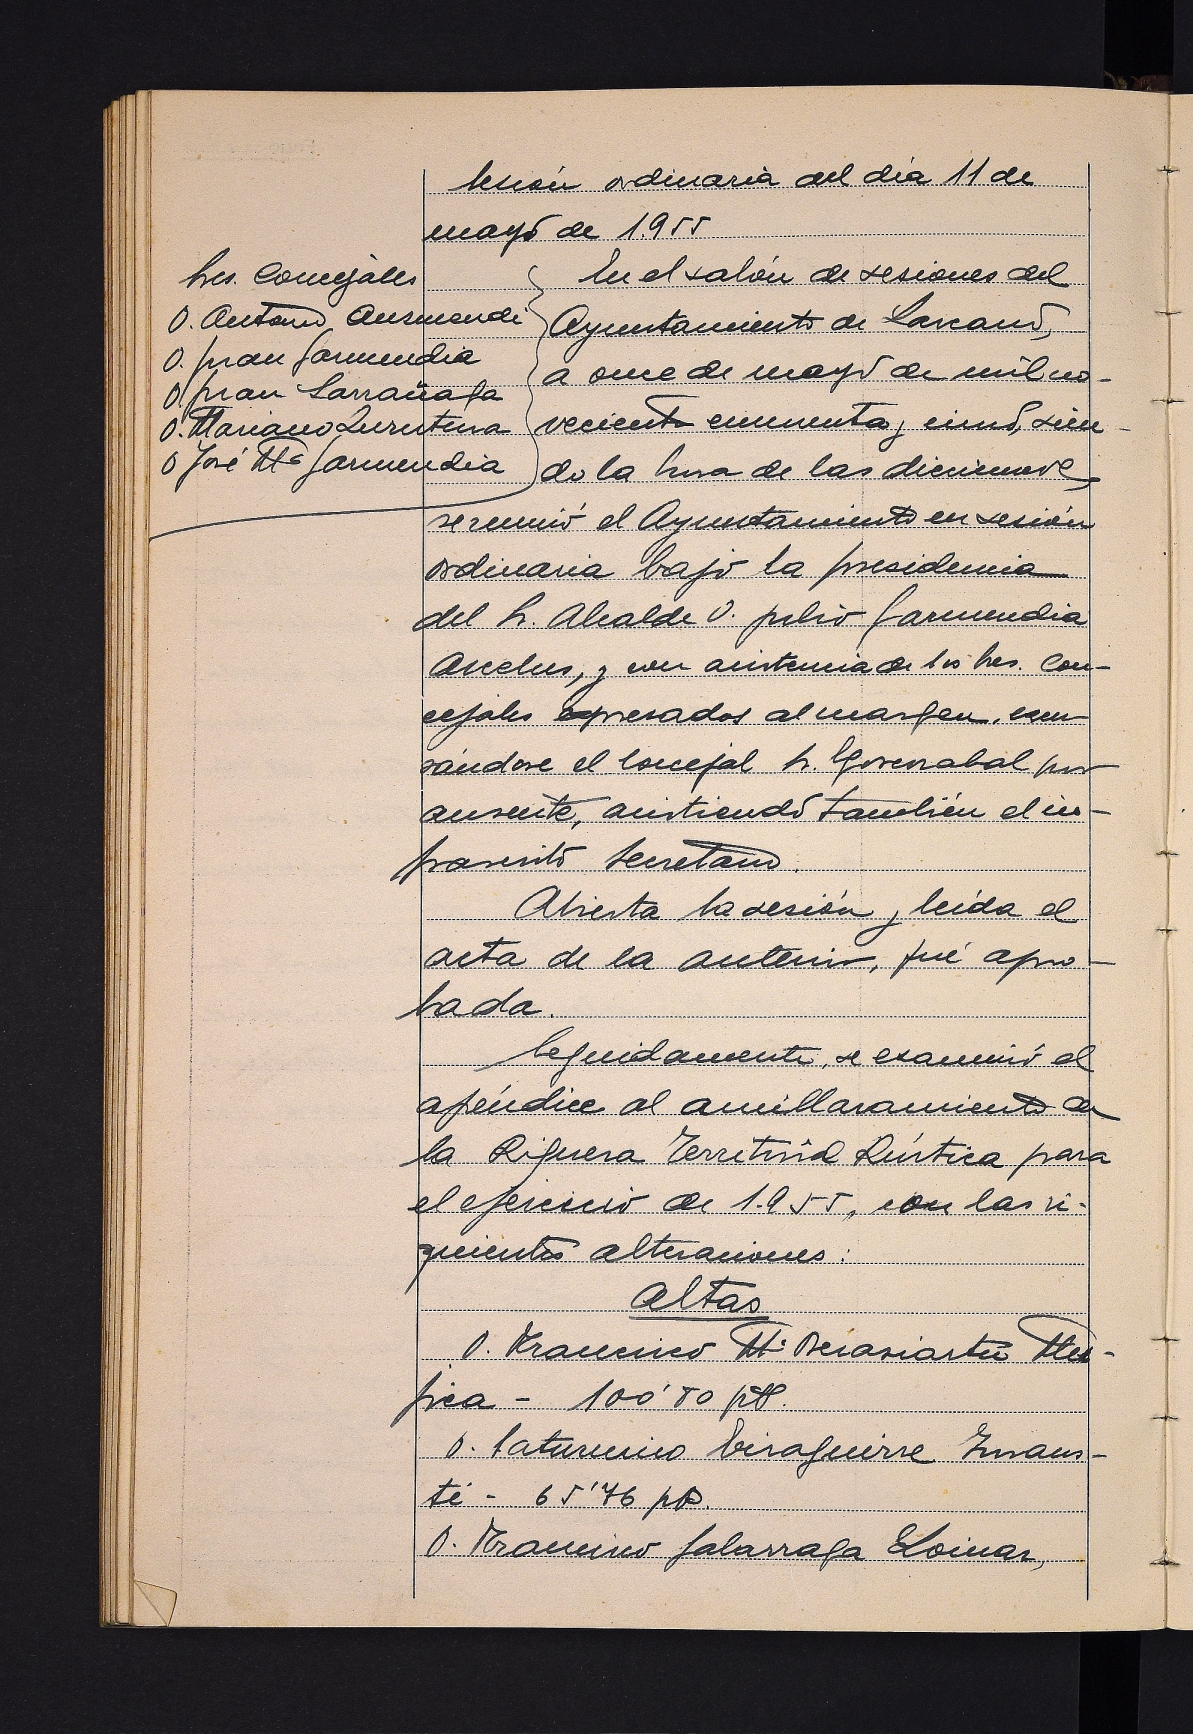 Sesión ordinaria del día 11 de
mayo de 1.955
Sres. Concejales
D. Antonio Aurmendi
D. Juan Garmendia
D. Juan Larrañaga
D. Mariano Zurutuza
D José Mª Garmendia
En el salón de sesiones del
Ayuntamiento de Lazcano,
a once de mayo de mil no-
vecientos cincuenta y cinco, sien-
do la hora de las diecinueve,
se reunió el Ayuntamiento en sesión
ordinaria bajo la presidencia
del Sr. Alcalde D. Julio Garmendia
y con asistencia de los Sres. Con-
cejales expresados al margen, excu-
sándose el Concejal Sr. por
ausente, asistiendo también el in-
frascrito Secretario.
Abierta la sesión y leída el
acta de la anterior, fué apro-
bada.
Seguidamente, se examinó el
apéndice al amillaramiento de
la Riqueza Territorial Rústica para
el ejercicio de 1.955, con las si-
guientes alteraciones:
Altas
D. Francisco Mª Berasiartu Mu-
jica - 100'80 pts.
D. Saturnino Insaus-
ti - 65'76 pts.
D. Francisco Galarraga Loinaz,